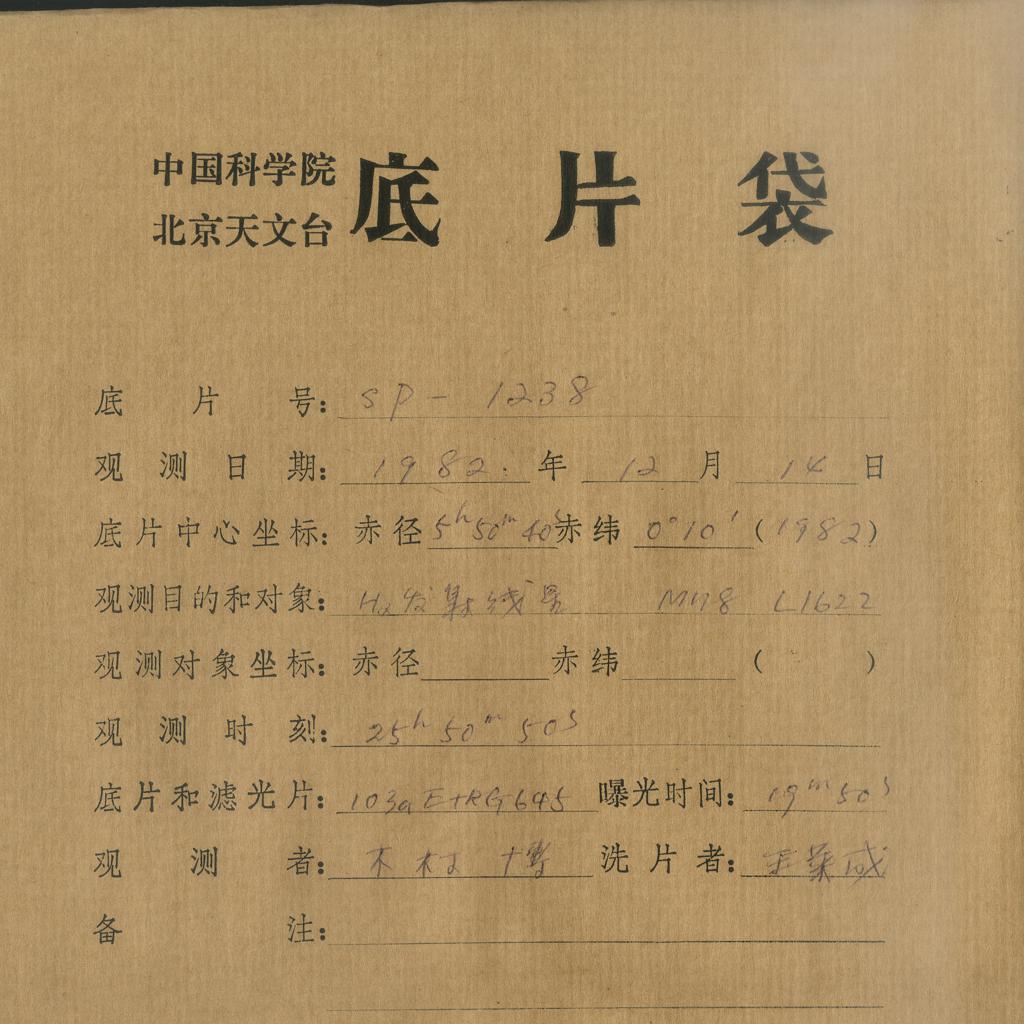 中国科学院
北京天文台
底片袋
底片号: SP-1238
观测日期: 1982.年 12 月 14 日
底片中心坐标: 赤径 5h 50m 40s 赤纬 0°10′ (1982)
观测目的和对象: Hα发射线星 M78 L1622
观测对象坐标: 赤径 赤纬 ( )
观测时刻: 25h 50m 50s
底片和滤光片: 103aE+RG645 曝光时间: 19m 50s
观测者: 木村 博 洗片者:
备注: